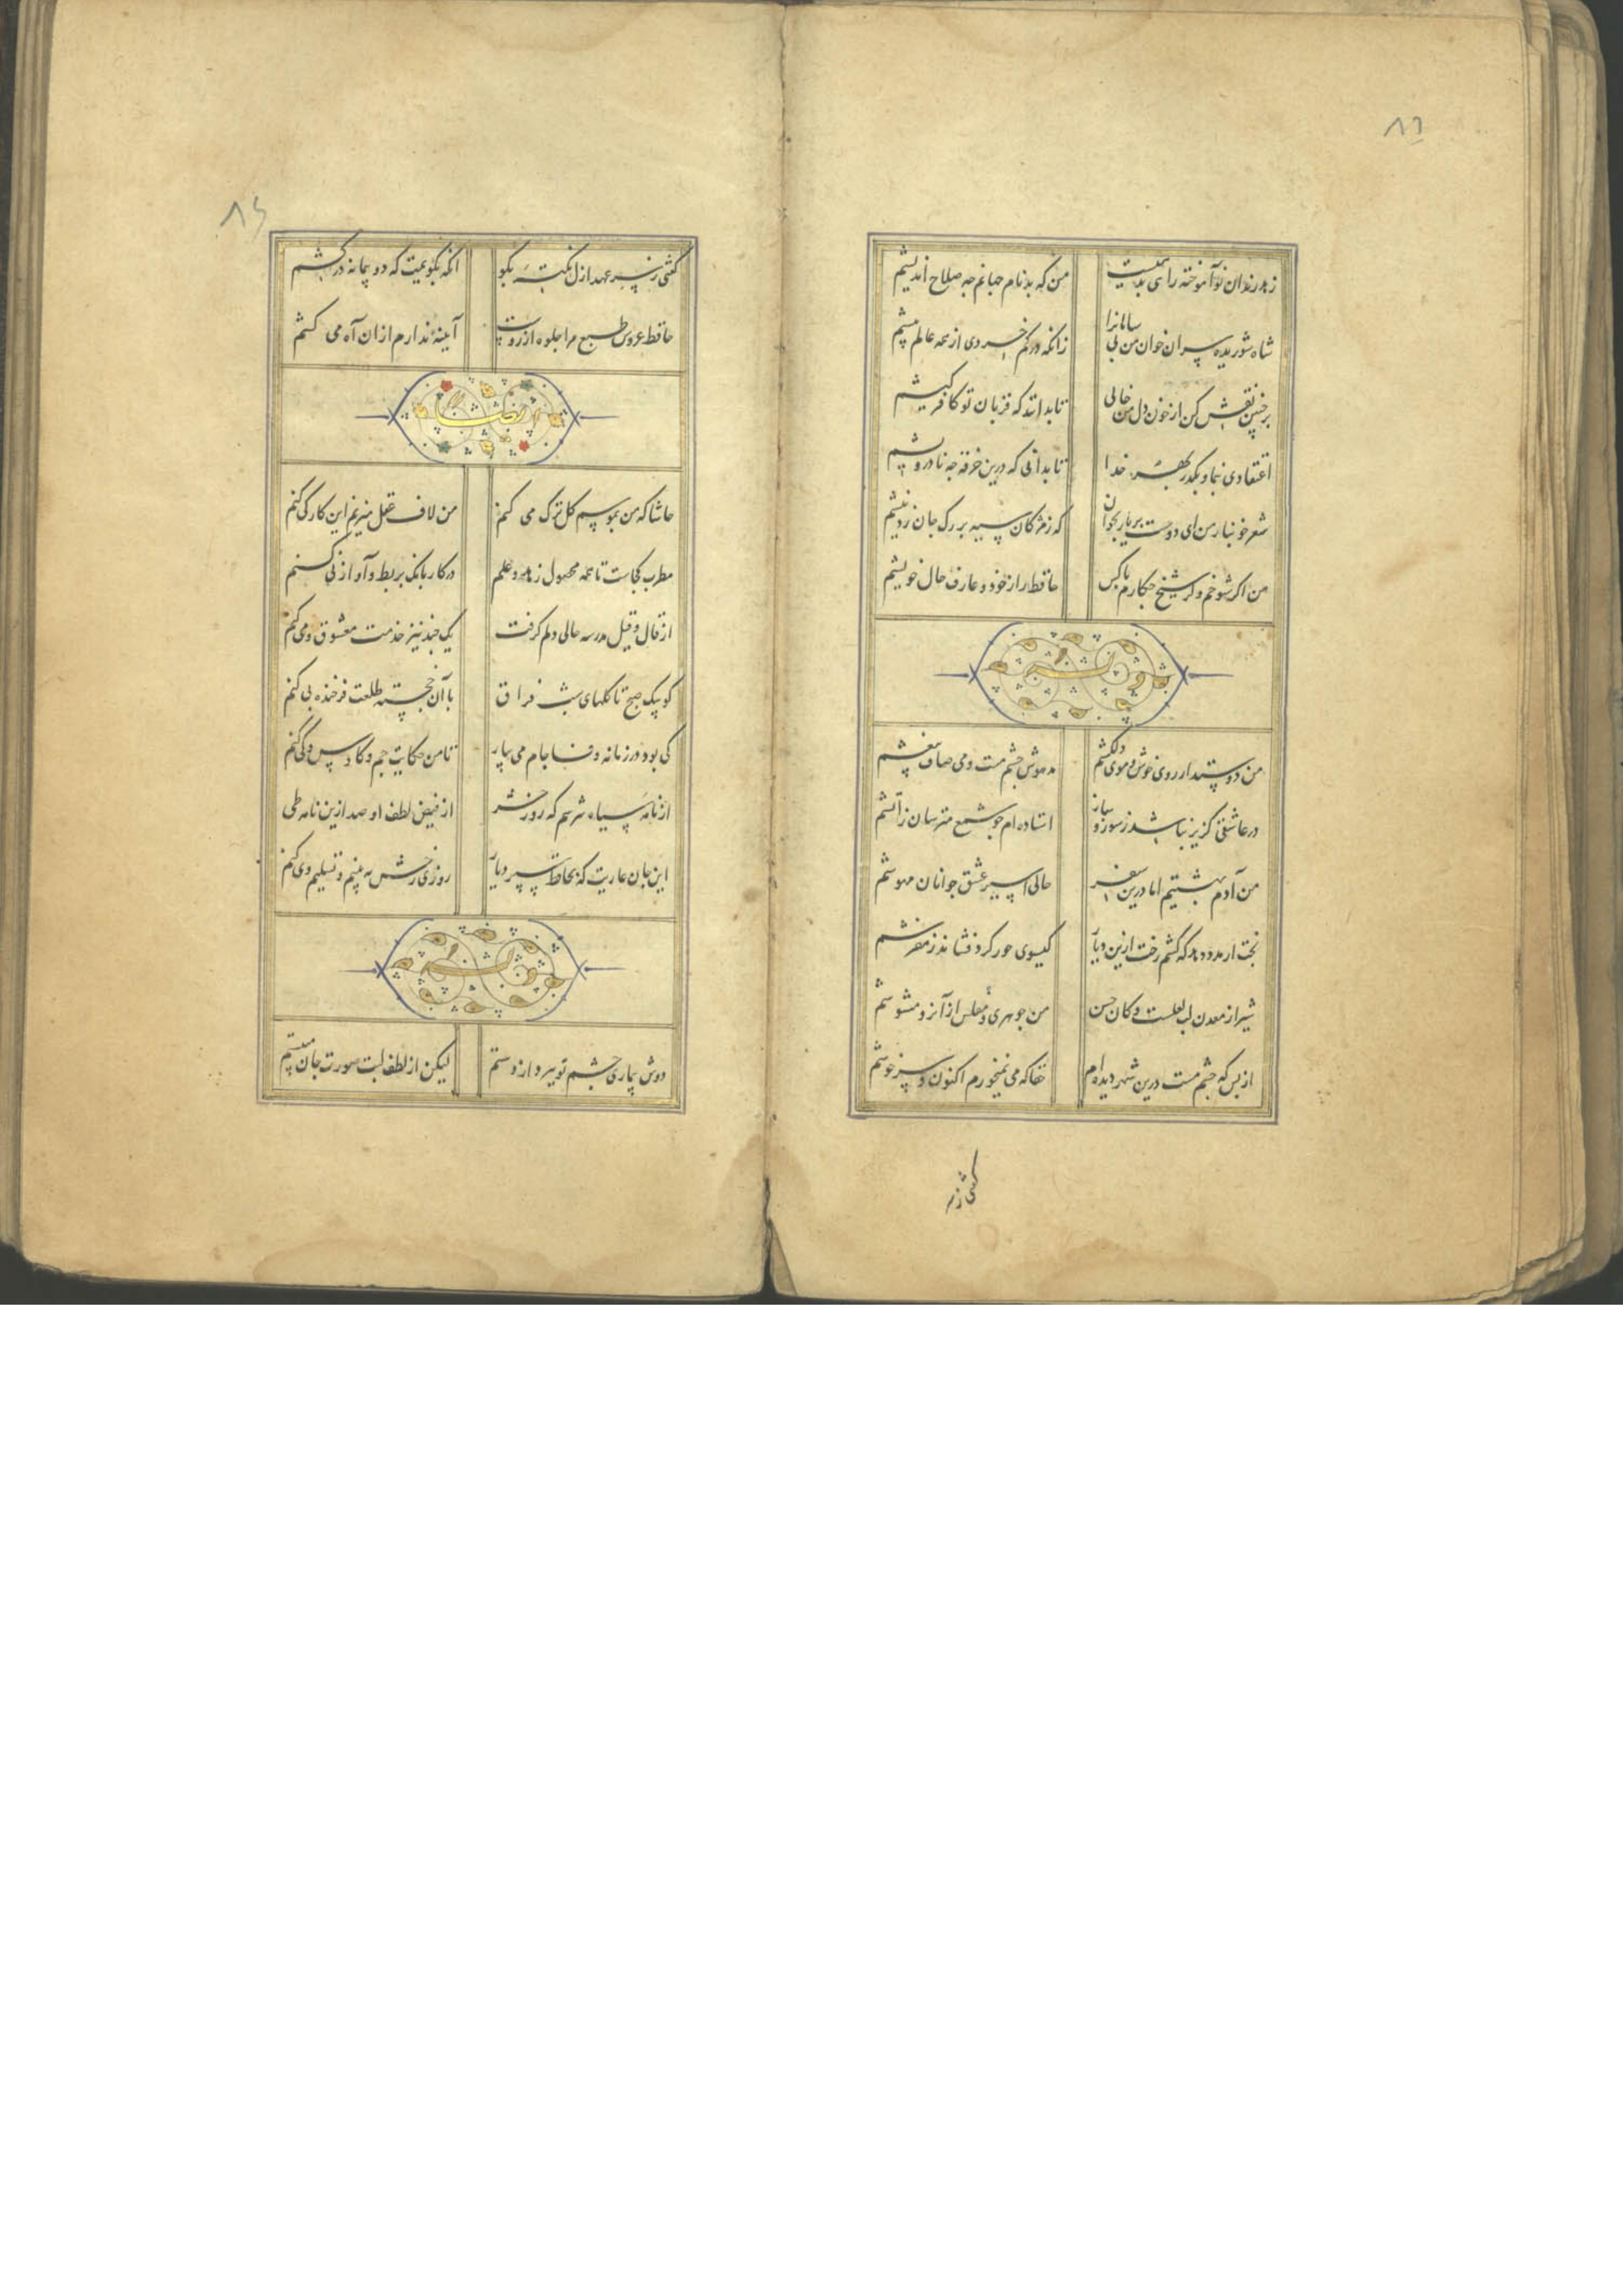 زهد رندان نوآموخته راهی بدهیست
من که بدنام جهانم چه صلاح اندیشم
شاه شوریده سران خوان من بی سامانرا
زانکه در کم خردی از همه عالم بیشم
بر جبین نقش کن از خون دل من خالی
تا بدانند که قربان تو کافر کیشم
اعتقادی بنما و بگذر بهر خدا
تا بدانی که درین خرقه چه نادرویشم
شعر خونبار من ای دوست بر یار بخوان
که ز مژگان سیه بر رگ جان زد نیشم
من اگر شوخم و گر شیخ چکارم با کس
حافظ راز خود و عارف حال خویشم
وله
من دوستدار روی خوش و موی دلکشم
مدهوش چشم مست و می صاف بیغشم
در عاشقی گزیر نباشد ز سوز و ساز
استاده ام چو شمع مترسان ز آتشم
من آدم بهشتیم اما درین سفر
حالی اسیر عشق جوانان مهوشم
بخت ار مدد دهد که کشم رخت ازین دیار
گیسوی حور گرد فشاند ز مفرشم
شیراز معدن لب لعلست و کان حسن
من جوهری و مفلس از آنرو مشوشم
از بس که چشم مست درین شهر دیده ام
حقا که می نمیخورم اکنون و سرخوشم
گفتی ز سر
۸۶
گفتی ز سر عهد ازل نکته بگو
آنگه بگویمت که دو پیمانه درکشم
حافظ عروس طبع مرا جلوه آرزوست
آیینه ندارم از ان آه می کشم
ایضا
حاشا که من بموسم گل ترک می کنم
من لاف عقل میزنم این کار کی کنم
مطرب کجاست تا همه محصول زهد و علم
در کار بانک بربط و آواز نی کنم
از قال و قیل مدرسه حالی دلم گرفت
یک چند نیز خدمت معشوق و می کنم
کو پیک صبح تا گلهای شب فراق
با آن خجسته طلعت فرخنده پی کنم
کی بود در زمانه وفا جام می بیار
تا من حکایت جم و کاوس و کی کنم
از نامه سیاه نترسم که روز حشر
از فیض لطف او صد ازین نامه طی
این جان عاریت که بحافظ سپرد یار
روزی رخش ببینم و تسلیم وی کنم
وله
دوش بیماری چشم تو ببرد از دستم
لیکن از لطف لبت صورت جان میبستم